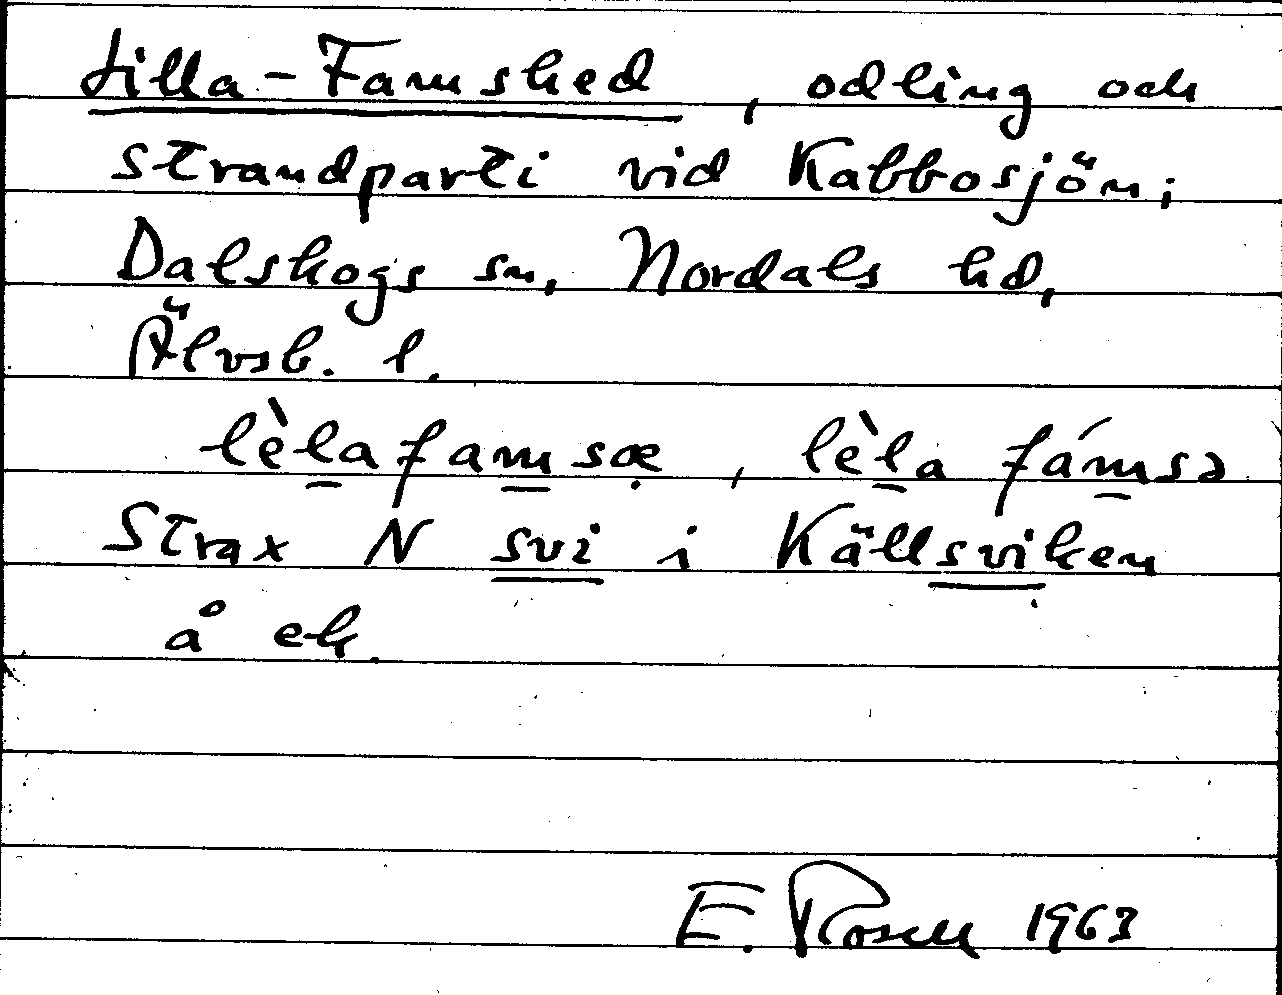 Lilla-Famshed, odling och
strandparti vid Kabbosjön;
Dalskogs sn, Nordals hd,
Älvsb. l.
lèlafamsœ, lèla fámsə
Strax N svi i Källsviken
å ek.
E. Rosell 1963